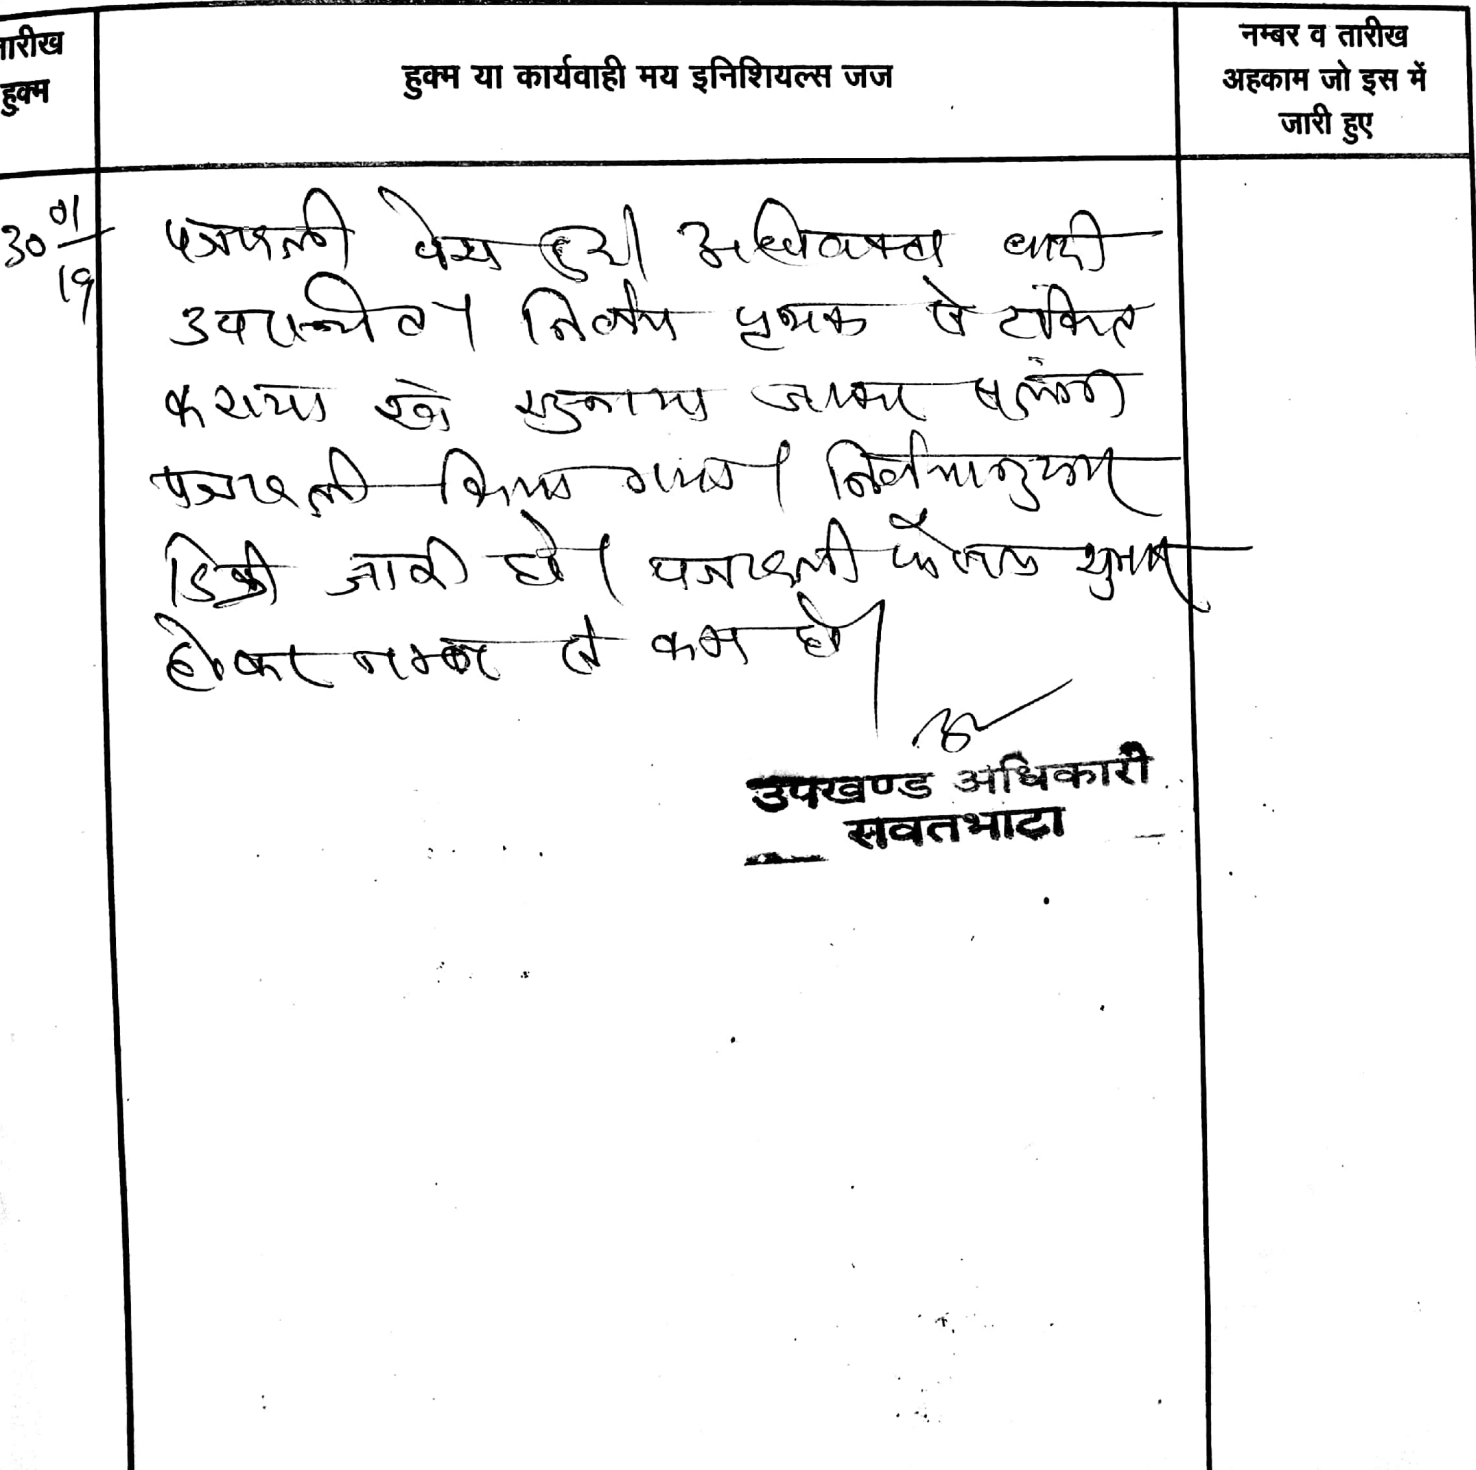 तारीख
हुक्म
हुक्म या कार्यवाही मय इनिशियल्स जज
नम्बर व तारीख
अहकाम जो इस में
जारी हुए
30 01/19
पत्रावली पेश हुयी। अधिवक्ता वादी
उपस्थित। निर्णय पृथक से टंकित
कराया जाकर
पत्रावली किया गया। निर्णयानुसार
डिक्री जारी हो। पत्रावली फैसल शुमार
होकर नम्बर से कम हो।
उपखण्ड अधिकारी
रावतभाटा